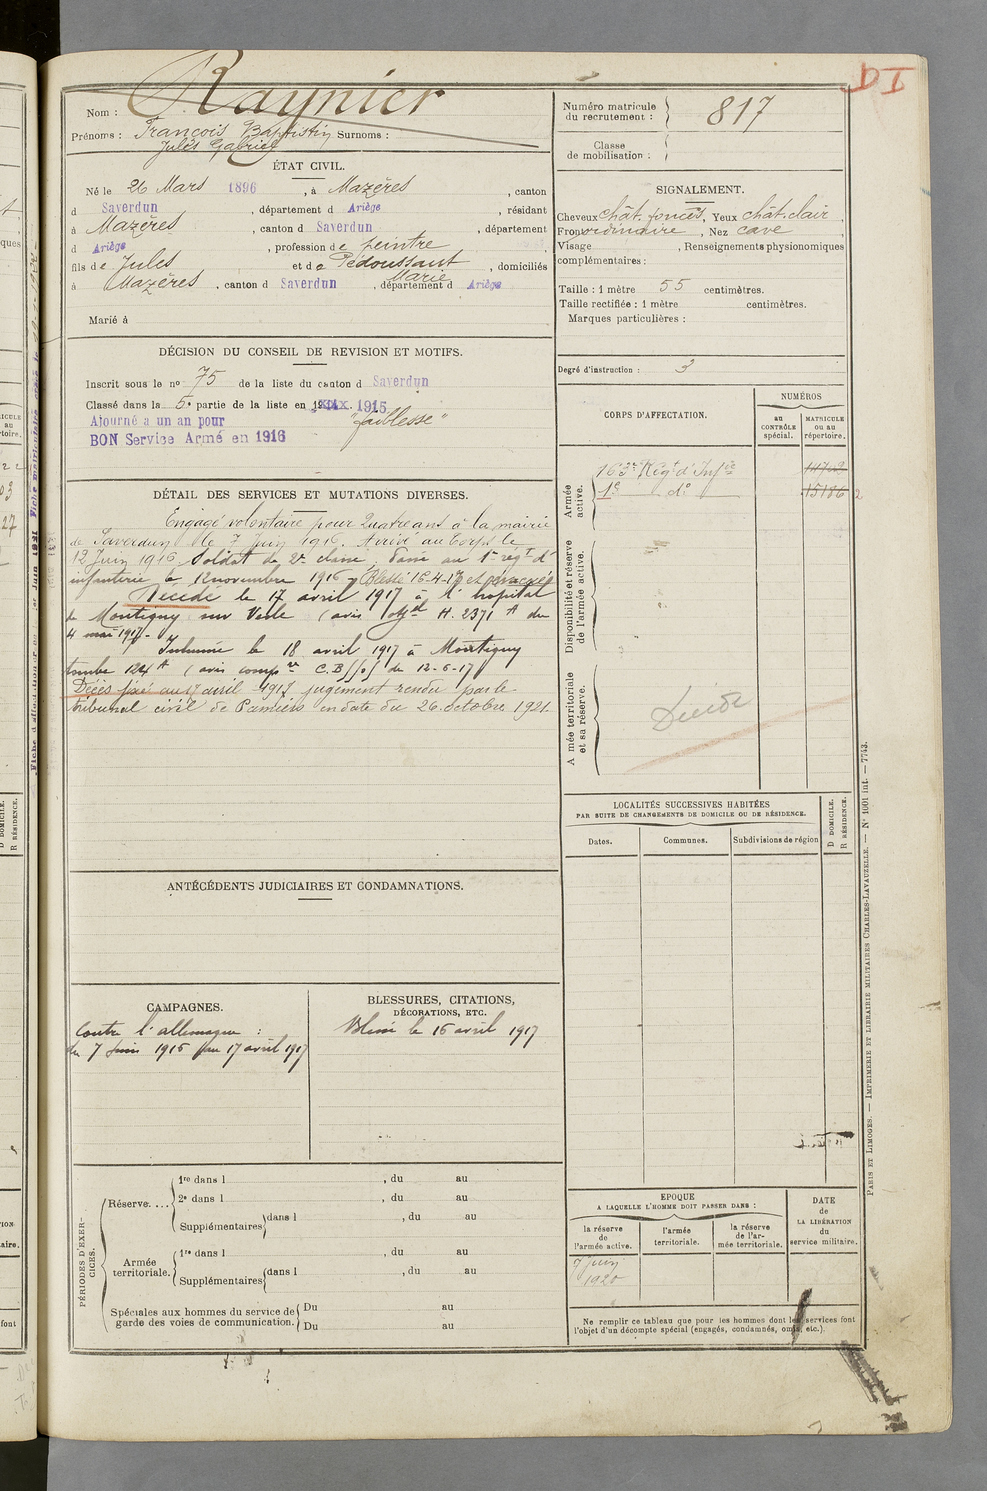 D I
Nom : Raynier
Prénoms : François Baptistin Surnoms :
Jules Gabriel
Numéro matricule du recrutement : 817
Classe de mobilisation :
ÉTAT CIVIL.
Né le 26 Mars 1896, à Mazères, canton
d Saverdun, département d Ariège, résidant
à Mazères, canton d Saverdun, département
d Ariège, profession de peintre
fils de Jules et de Pédoussaut Marie, domiciliés
à Mazères, canton d Saverdun, département d Ariège
Marié à
SIGNALEMENT.
Cheveux chât. foncés, Yeux chât. clair,
Front ordinaire, Nez cave,
Visage , Renseignements physionomiques
complémentaires :
Taille : 1 mètre 55 centimètres.
Taille rectifiée : 1 mètre centimètres.
Marques particulières :
Degré d'instruction : 3
DÉCISION DU CONSEIL DE REVISION ET MOTIFS.
Inscrit sous le no 75 de la liste du canton d Saverdun
Classé dans la 5e partie de la liste en 1915
Ajourné a un an pour "faiblesse"
BON Service Armé en 1916
CORPS D'AFFECTATION.
NUMÉROS
au CONTRÔLE spécial.
MATRICULE ou au répertoire.
Armée active.
163e Régt d'Infie
1er do 15186
Disponibilité et réserve de l'armée active.
Armée territoriale et sa réserve.
Décédé
DÉTAIL DES SERVICES ET MUTATIONS DIVERSES.
Engagé volontaire pour quatre ans à la mairie
de Saverdun le 7 Juin 1916. Arrivé au Corps le
12 Juin 1916 Soldat de 2e classe, Passé au 1er régt d'
infanterie le 12 novembre 1916 Blessé 16-4-17 et évacué
Décédé le 17 avril 1917 à l'hopital
de Montigny sur Vesle (avis M. 2371 A du
4 mai 1917-
Inhumé le 18 avril 1917 à Montigny
tombe 124 A (avis du 12-6-17)
Décès fixé au 17 avril 1917 jugement rendu par le
tribunal civil de Pamiers en date du 26 octobre 1921.
LOCALITÉS SUCCESSIVES HABITÉES
PAR SUITE DE CHANGEMENTS DE DOMICILE OU DE RÉSIDENCE.
Dates.
Communes.
Subdivisions de région
D DOMICILE.
R RÉSIDENCE.
ANTÉCÉDENTS JUDICIAIRES ET CONDAMNATIONS.
CAMPAGNES.
Contre l'allemagne :
du 7 Juin 1916 au 17 avril 1917
BLESSURES, CITATIONS,
DÉCORATIONS, ETC.
Blessé le 16 avril 1917
PÉRIODES D'EXERCICES.
Réserve....
1re dans l , du au
2e dans l , du au
Supplémentaires dans l , du au
Armée territoriale.
1re dans l , du au
Supplémentaires dans l , du au
Spéciales aux hommes du service de garde des voies de communication.
Du au
Du au
EPOQUE
A LAQUELLE L'HOMME DOIT PASSER DANS :
la réserve de l'armée active.
l'armée territoriale.
la réserve de l'armée territoriale.
DATE de LA LIBÉRATION du service militaire.
7 Juin
1920
Ne remplir ce tableau que pour les hommes dont les services font
l'objet d'un décompte spécial (engagés, condamnés, omis, etc.).
PARIS ET LIMOGES. — IMPRIMERIE ET LIBRAIRIE MILITAIRES CHARLES-LAVAUZELLE. — N° 1001 int. — 7743.